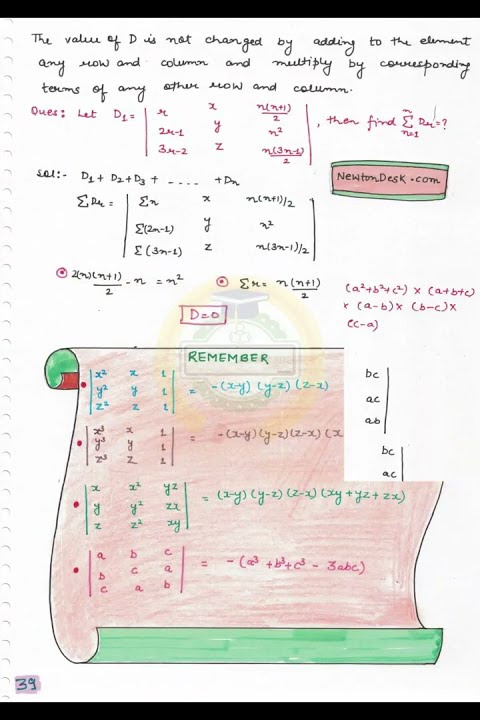 The value of D is not changed by adding to the element
any row and column and multiply by corresponding
terms of any other row and column.
Ques: Let D1 = | r x n(n+1)/2 |
| 2r-1 y n² |
| 3r-2 z n(3n-1)/2 | , then find Σ(n=1 to n) Dr = ?
NEWTONDESK.COM
Sol:- D1 + D2 + D3 + ...... + Dn
ΣDr = | Σn x n(n+1)/2 |
| Σ(2n-1) y n² |
| Σ(3n-1) z n(3n-1)/2 |
2(n)(n+1)/2 - n = n²
Σr = n(n+1)/2
(a²+b²+c²) × (a+b+c)
× (a-b) × (b-c) ×
(c-a)
D=0
REMEMBER
| x² x 1 |
| y² y 1 | = -(x-y) (y-z) (z-x)
| z² z 1 |
bc |
ac |
ab |
| x³ x 1 |
| y³ y 1 | = -(x-y) (y-z) (z-x) (x
| z³ z 1 |
bc |
ac |
| x x² yz |
| y y² zx | = (x-y) (y-z) (z-x) (xy + yz + zx)
| z z² xy |
| a b c |
| b c a | = -(a³ + b³ + c³ - 3abc)
| c a b |
39